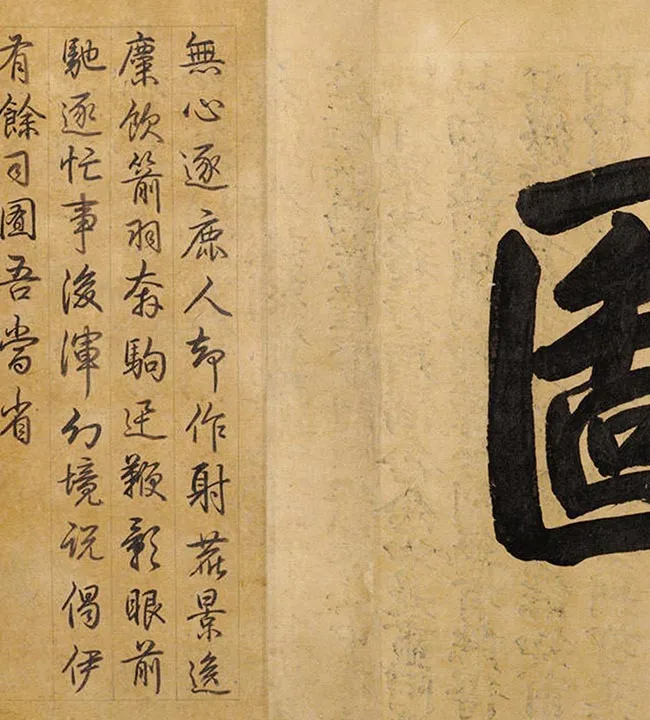 圖
無心逐鹿人却作射景逸
麋飲箭羽奔駒迅鞭影眼前
馳逐忙事後渾幻境説偈伊
有餘司圖吾當省